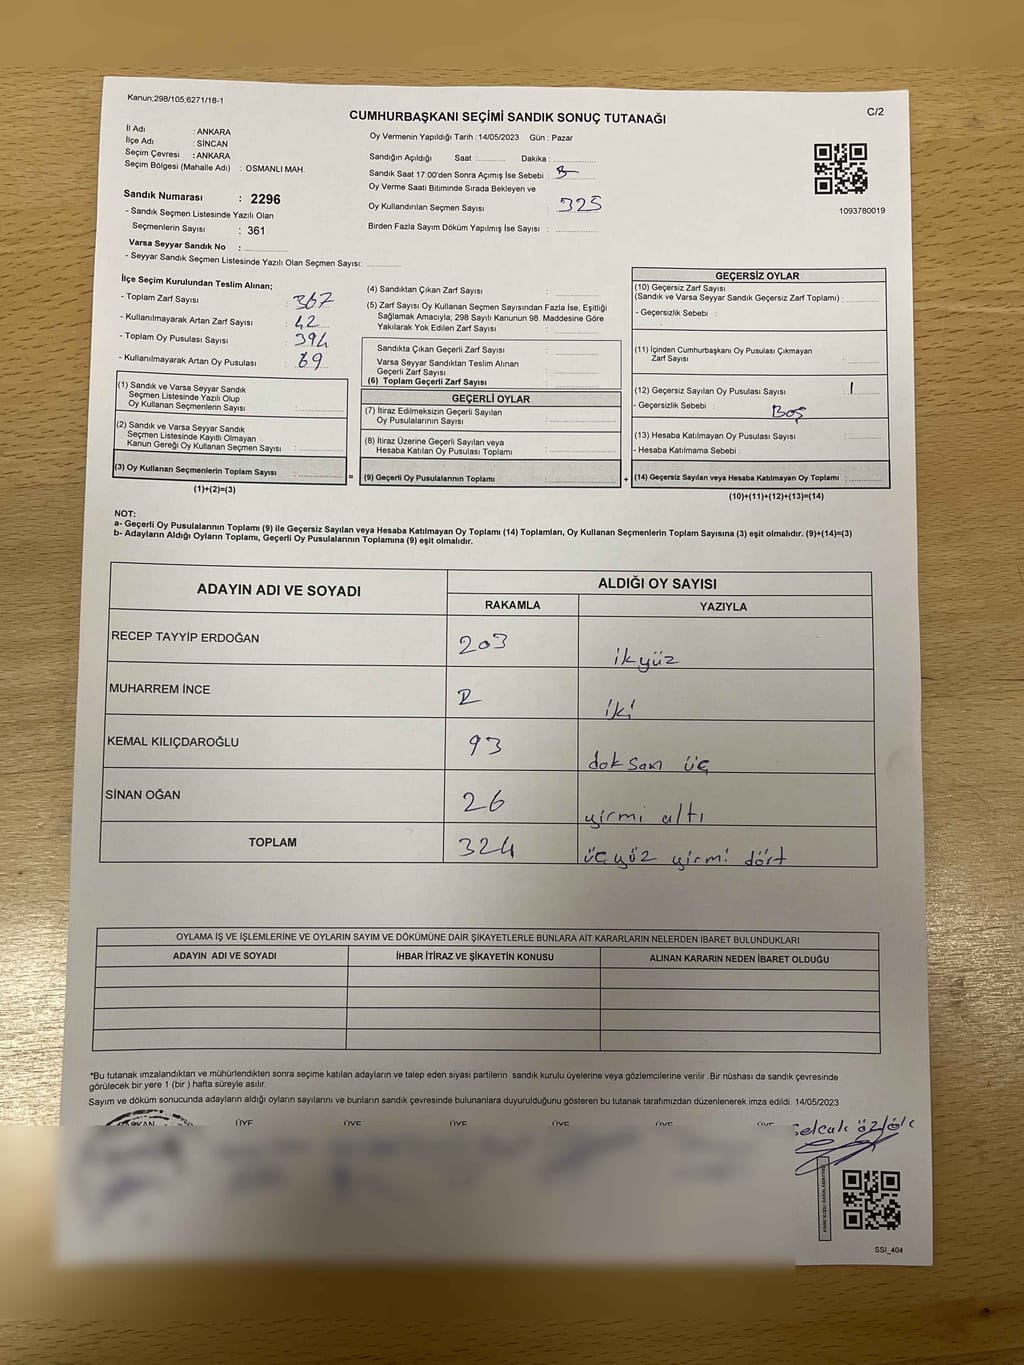 Kanun;298/105,6271/18-1
C/2
CUMHURBAŞKANI SEÇİMİ SANDIK SONUÇ TUTANAĞI
İl Adı : ANKARA
İlçe Adı : SİNCAN
Seçim Çevresi : ANKARA
Seçim Bölgesi (Mahalle Adı) : OSMANLI MAH.
Sandık Numarası : 2296
- Sandık Seçmen Listesinde Yazılı Olan
Seçmenlerin Sayısı : 361
Varsa Seyyar Sandık No :
- Seyyar Sandık Seçmen Listesinde Yazılı Olan Seçmen Sayısı:
Oy Vermenin Yapıldığı Tarih : 14/05/2023 Gün : Pazar
Sandığın Açıldığı Saat : Dakika :
Sandık Saat 17.00'den Sonra Açımış İse Sebebi :
Oy Verme Saati Bitiminde Sırada Bekleyen ve
Oy Kullandırılan Seçmen Sayısı : 325
Birden Fazla Sayım Döküm Yapılmış İse Sayısı :
1093780019
İlçe Seçim Kurulundan Teslim Alınan;
- Toplam Zarf Sayısı : 367
- Kullanılmayarak Artan Zarf Sayısı : 42
- Toplam Oy Pusulası Sayısı : 394
- Kullanılmayarak Artan Oy Pusulası : 69
(1) Sandık ve Varsa Seyyar Sandık
Seçmen Listesinde Yazılı Olup
Oy Kullanan Seçmenlerin Sayısı :
(2) Sandık ve Varsa Seyyar Sandık
Seçmen Listesinde Kayıtlı Olmayan
Kanun Gereği Oy Kullanan Seçmen Sayısı :
(3) Oy Kullanan Seçmenlerin Toplam Sayısı :
(1)+(2)=(3)
(4) Sandıktan Çıkan Zarf Sayısı :
(5) Zarf Sayısı Oy Kullanan Seçmen Sayısından Fazla İse, Eşitliği
Sağlamak Amacıyla; 298 Sayılı Kanunun 98. Maddesine Göre
Yakılarak Yok Edilen Zarf Sayısı :
Sandıkta Çıkan Geçerli Zarf Sayısı :
Varsa Seyyar Sandıktan Teslim Alınan
Geçerli Zarf Sayısı :
(6) Toplam Geçerli Zarf Sayısı :
GEÇERLİ OYLAR
(7) İtiraz Edilmeksizin Geçerli Sayılan
Oy Pusulalarının Sayısı :
(8) İtiraz Üzerine Geçerli Sayılan veya
Hesaba Katılan Oy Pusulası Toplamı :
= (9) Geçerli Oy Pusulalarının Toplamı :
GEÇERSİZ OYLAR
(10) Geçersiz Zarf Sayısı
(Sandık ve Varsa Seyyar Sandık Geçersiz Zarf Toplamı) :
- Geçersizlik Sebebi :
(11) İçinden Cumhurbaşkanı Oy Pusulası Çıkmayan
Zarf Sayısı :
(12) Geçersiz Sayılan Oy Pusulası Sayısı : 1
- Geçersizlik Sebebi : Boş
(13) Hesaba Katılmayan Oy Pusulası Sayısı :
- Hesaba Katılmama Sebebi :
+ (14) Geçersiz Sayılan veya Hesaba Katılmayan Oy Toplamı :
(10)+(11)+(12)+(13)=(14)
NOT:
a- Geçerli Oy Pusulalarının Toplamı (9) ile Geçersiz Sayılan veya Hesaba Katılmayan Oy Toplamı (14) Toplamları, Oy Kullanan Seçmenlerin Toplam Sayısına (3) eşit olmalıdır. (9)+(14)=(3)
b- Adayların Aldığı Oyların Toplamı, Geçerli Oy Pusulalarının Toplamına (9) eşit olmalıdır.
ADAYIN ADI VE SOYADI
ALDIĞI OY SAYISI
RAKAMLA YAZIYLA
RECEP TAYYİP ERDOĞAN 203 ikyüz
MUHARREM İNCE 2 iki
KEMAL KILIÇDAROĞLU 93 doksan üç
SİNAN OĞAN 26 yirmi altı
TOPLAM 324 üçyüz yirmi dört
OYLAMA İŞ VE İŞLEMLERİNE VE OYLARIN SAYIM VE DÖKÜMÜNE DAİR ŞİKAYETLERLE BUNLARA AİT KARARLARIN NELERDEN İBARET BULUNDUKLARI
ADAYIN ADI VE SOYADI İHBAR İTİRAZ VE ŞİKAYETİN KONUSU ALINAN KARARIN NEDEN İBARET OLDUĞU
*Bu tutanak imzalandıktan ve mühürlendikten sonra seçime katılan adayların ve talep eden siyasi partilerin sandık kurulu üyelerine veya gözlemcilerine verilir .Bir nüshası da sandık çevresinde
görülecek bir yere 1 (bir ) hafta süreyle asılır.
Sayım ve döküm sonucunda adayların aldığı oyların sayılarını ve bunların sandık çevresinde bulunanlara duyurulduğunu gösteren bu tutanak tarafımızdan düzenlenerek imza edildi. 14/05/2023
BAŞKAN ÜYE ÜYE ÜYE ÜYE ÜYE ÜYE
SSI_404